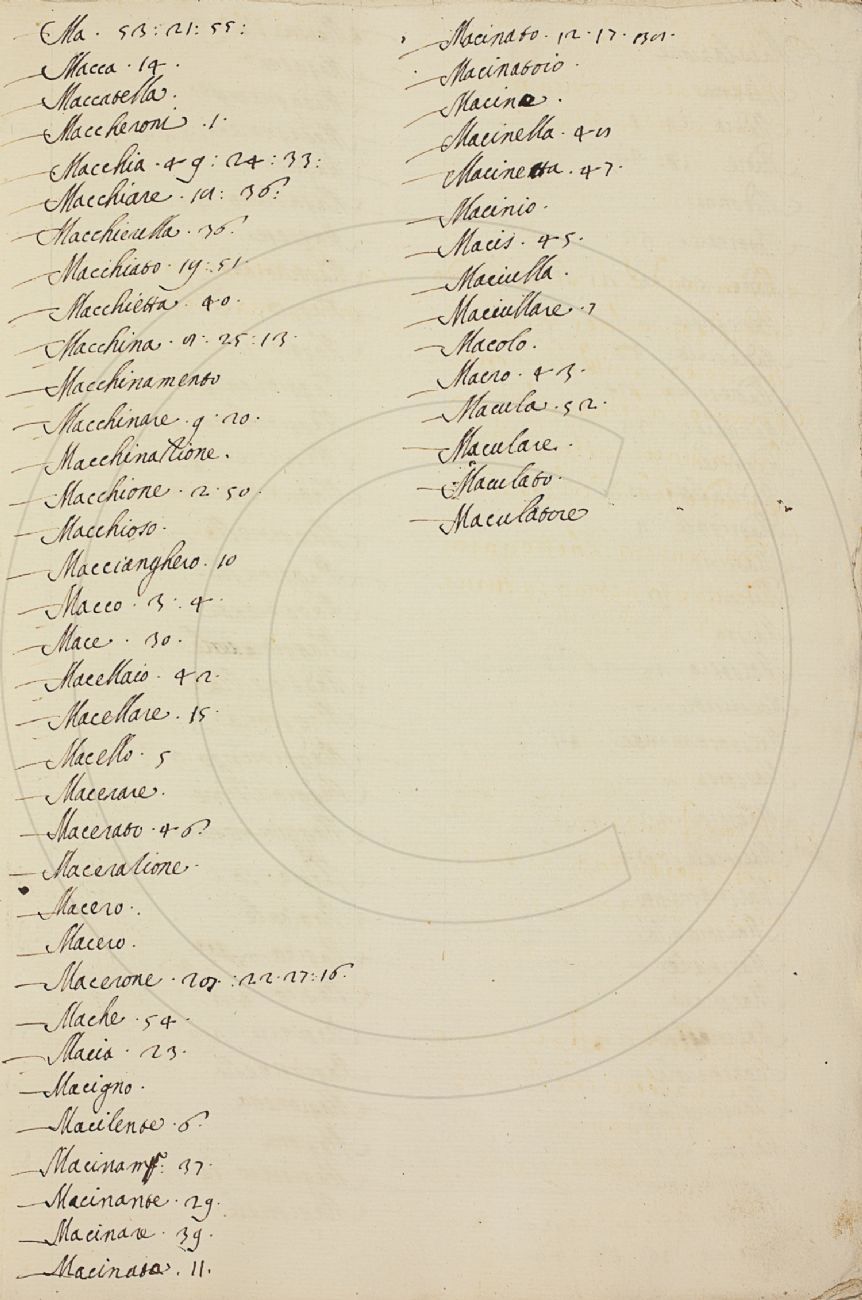 Ma · 53 : 21 : 55 :
Macca · 14 ·
Maccatella ·
Maccheroni · 1 ·
Macchia · 49 : 24 : 33 :
Macchiare · 18 : 36 :
Macchierella · 36 :
Macchiato · 19 : 51 ·
Macchietta · 40 ·
Macchina · 8 : 25 : 13 ·
Macchinamento
Macchinare · 9 · 20 ·
Macchinatione ·
Macchione · 2 · 50 ·
Macchioso ·
Maccianghero · 10
Macco · 3 : 4 ·
Mace · 30 ·
Macellaio · 42 ·
Macellare · 15 ·
Macello · 5
Macerare ·
Macerato · 46 :
Maceratione ·
Macero ·
Macero ·
Macerone · : 22 · 27 : 16 ·
Mache · 54 ·
Macia · 23 ·
Macigno ·
Macilente · 6 :
37 ·
Macinante · 29 ·
Macinare · 39 ·
Macinata · 11 ·
Macinato · 12 · 17 ·
Macinatoio ·
Macine ·
Macinella · 48
Macinetta · 47 ·
Macinio ·
Macis · 45 ·
Maciulla ·
Maciullare · 7
Macolo ·
Macro · 43 ·
Macula · 52 ·
Maculare ·
Maculato ·
Maculatore